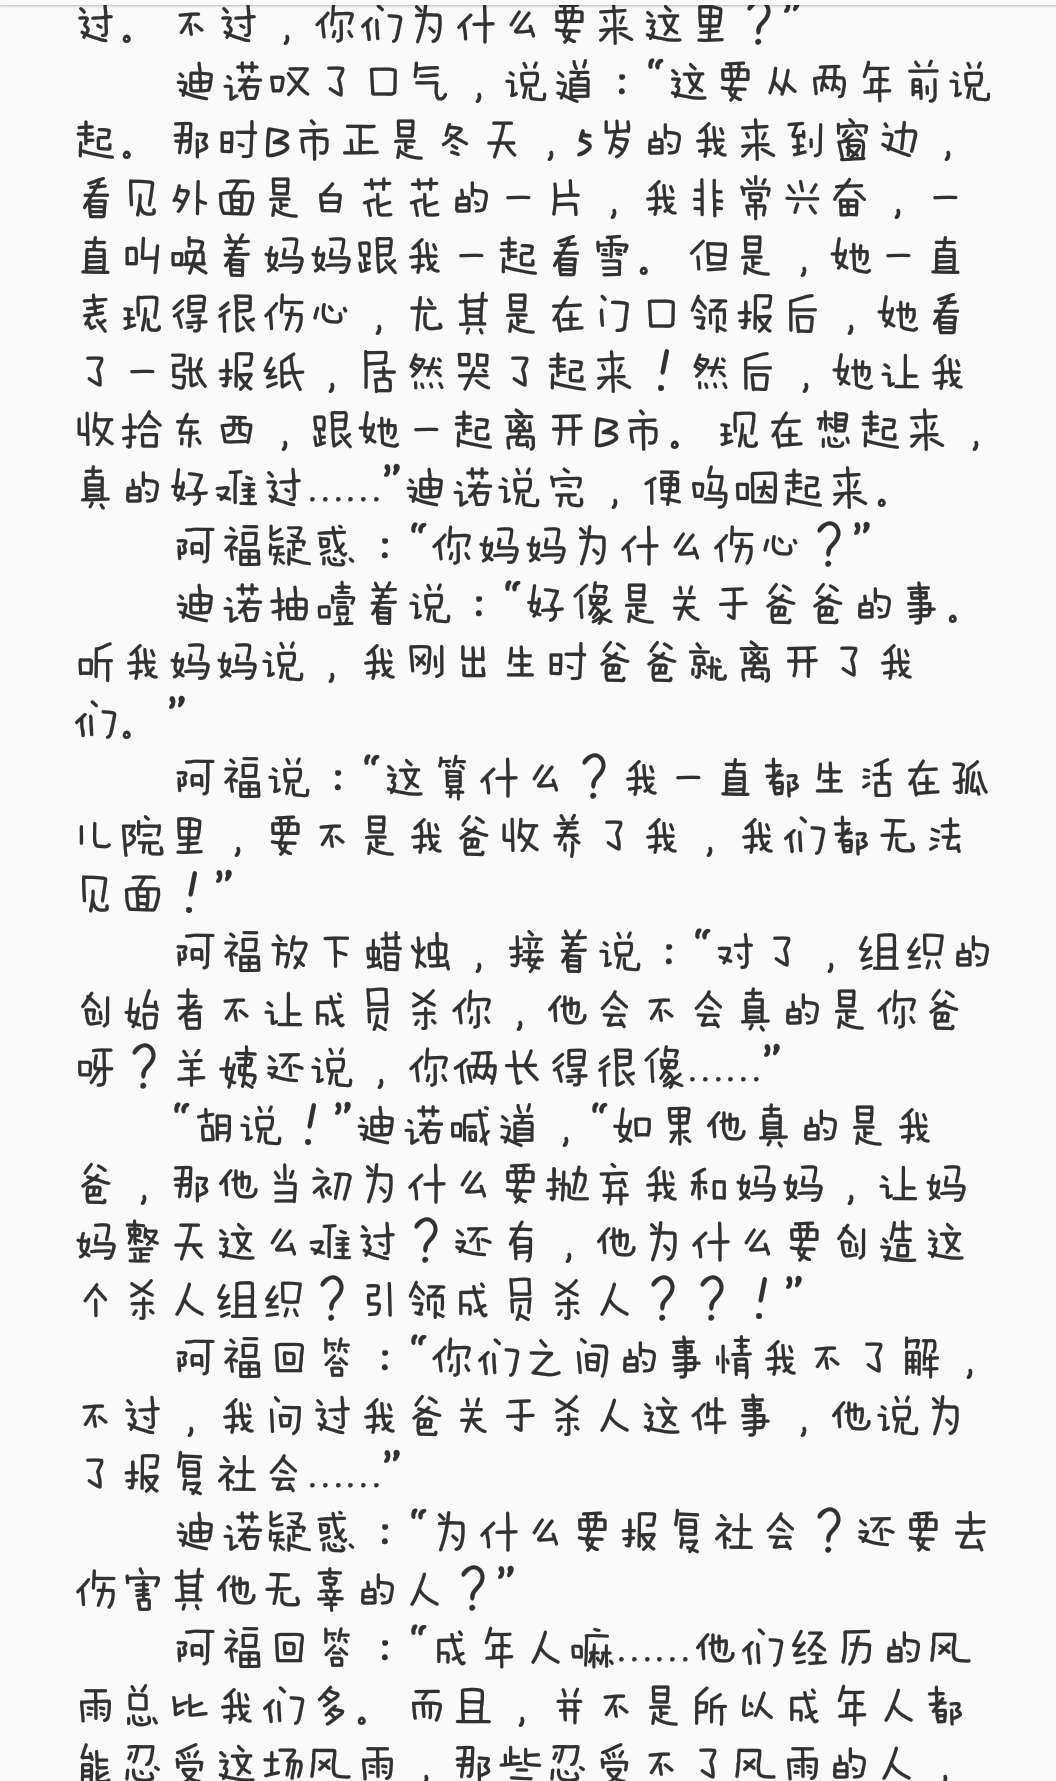 过。不过，你们为什么要来这里？”
迪诺叹了口气，说道：“这要从两年前说
起。那时B市正是冬天，5岁的我来到窗边，
看见外面是白花花的一片，我非常兴奋，一
直叫唤着妈妈跟我一起看雪。但是，她一直
表现得很伤心，尤其是在门口领报后，她看
了一张报纸，居然哭了起来！然后，她让我
收拾东西，跟她一起离开B市。现在想起来，
真的好难过……”迪诺说完，便呜咽起来。
阿福疑惑：“你妈妈为什么伤心？”
迪诺抽噎着说：“好像是关于爸爸的事。
听我妈妈说，我刚出生时爸爸就离开了我
们。”
阿福说：“这算什么？我一直都生活在孤
儿院里，要不是我爸收养了我，我们都无法
见面！”
阿福放下蜡烛，接着说：“对了，组织的
创始者不让成员杀你，他会不会真的是你爸
呀？羊姨还说，你俩长得很像……”
“胡说！”迪诺喊道，“如果他真的是我
爸，那他当初为什么要抛弃我和妈妈，让妈
妈整天这么难过？还有，他为什么要创造这
个杀人组织？引领成员杀人？？！”
阿福回答：“你们之间的事情我不了解，
不过，我问过我爸关于杀人这件事，他说为
了报复社会……”
迪诺疑惑：“为什么要报复社会？还要去
伤害其他无辜的人？”
阿福回答：“成年人嘛……他们经历的风
雨总比我们多。而且，并不是所以成年人都
能忍受这场风雨，那些忍受不了风雨的人，